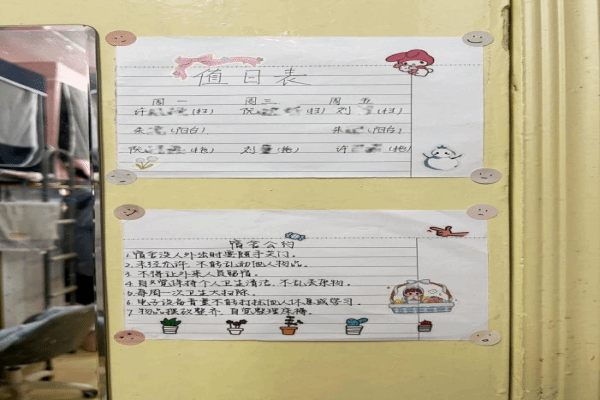 值日表
周一 周三 周五
许 (扫) 阮 (扫) 刘 (扫)
朱 (阳台) 朱 (阳台)
阮 (拖) 刘 (拖) 许 (拖)
宿舍公约
1.宿舍没人外出时要随手关门。
2.未经允许,不能乱动他人物品。
3.不得让外来人员留宿。
4.自觉保持个人卫生清洁,不乱丢杂物。
5.每周一次卫生大扫除。
6.电子设备音量不能打扰他人休息或学习。
7.物品摆放整齐,自觉整理床褥。